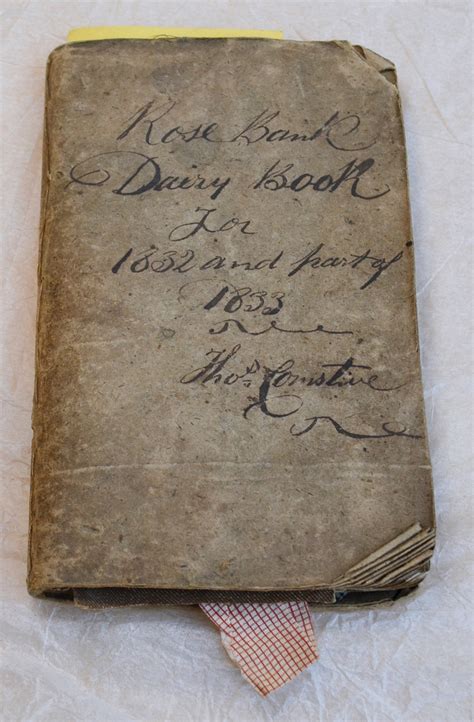 Rose Bank
Dairy Book
For
1832 and part of
1833
Thos. Comstive